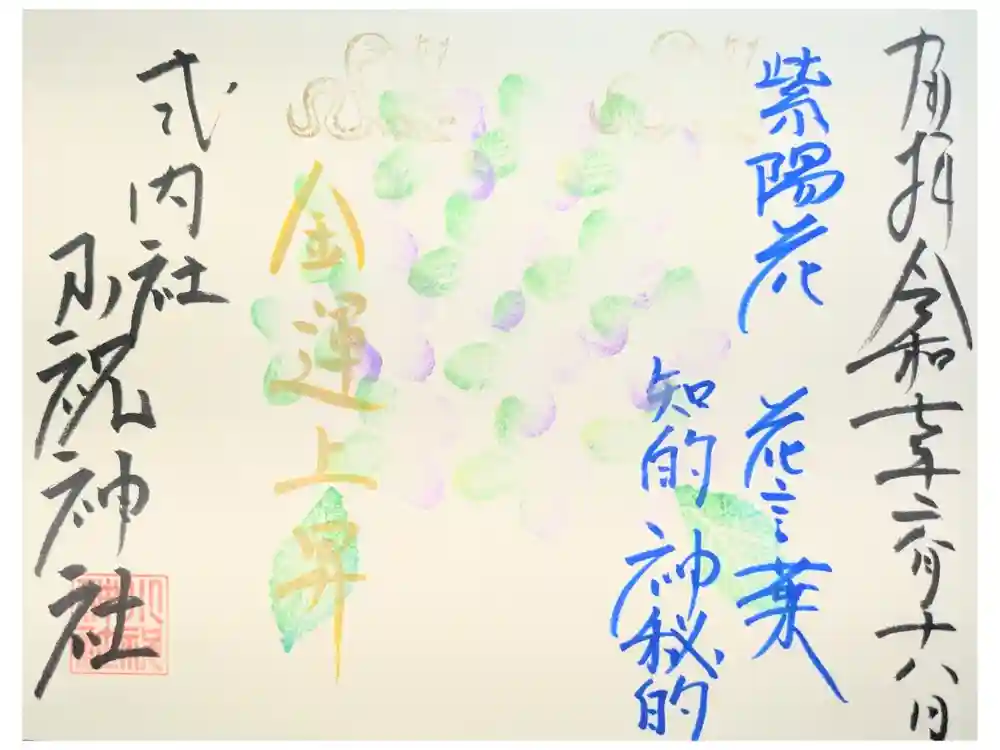 拝 令和七年六月十八日
紫陽花 花言葉
知的 神秘的
金運上昇
式内社
小祝神社
小祝神社